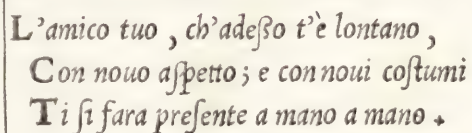 L'amico tuo, ch'adeßo t'è lontano,
Con nouo aſpetto; e con noui coſtumi
Ti ſi fara preſente a mano a mano.